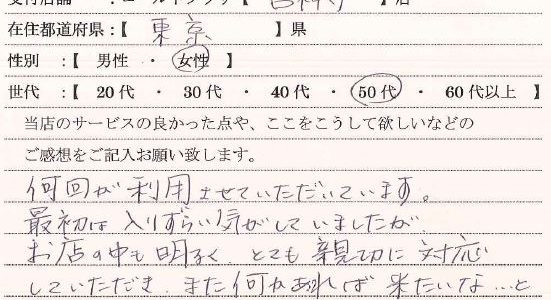 在住都道府県:【 東京 】県
性別 :【 男性 ・ 女性 】
世代 :【 20代 ・ 30代 ・ 40代 ・ 50代 ・ 60代以上 】
当店のサービスの良かった点や、ここをこうして欲しいなどの
ご感想をご記入お願い致します。
何回か利用させていただいています。
最初は入りずらい気がしていましたが
お店の中も明るく、とても親切に対応
していただき、また何かあれば来たいな…と